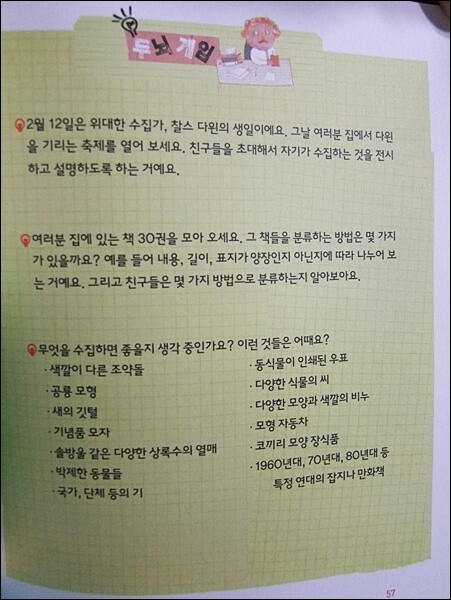 두뇌 게임
2월 12일은 위대한 수집가, 찰스 다윈의 생일이에요. 그날 여러분 집에서 다윈
을 기리는 축제를 열어 보세요. 친구들을 초대해서 자기가 수집하는 것을 전시
하고 설명하도록 하는 거예요.
여러분 집에 있는 책 30권을 모아 오세요. 그 책들을 분류하는 방법은 몇 가지
가 있을까요? 예를 들어 내용, 길이, 표지가 양장인지 아닌지에 따라 나누어 보
는 거예요. 그리고 친구들은 몇 가지 방법으로 분류하는지 알아보아요.
무엇을 수집하면 좋을지 생각 중인가요? 이런 것들은 어때요?
· 색깔이 다른 조약돌
· 공룡 모형
· 새의 깃털
· 기념품 모자
· 솔방울 같은 다양한 상록수의 열매
· 박제한 동물들
· 국가, 단체 등의 기
· 동식물이 인쇄된 우표
· 다양한 식물의 씨
· 다양한 모양과 색깔의 비누
· 모형 자동차
· 코끼리 모양 장식품
· 1960년대, 70년대, 80년대 등
특정 연대의 잡지나 만화책
57